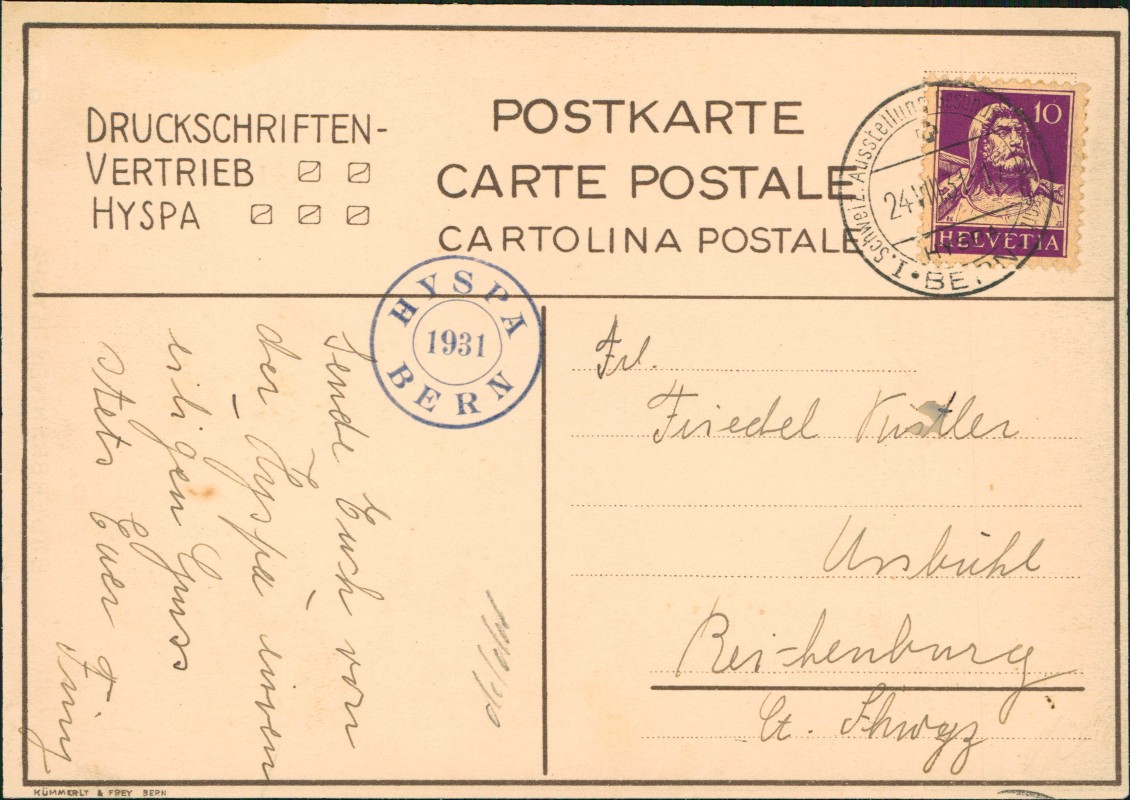 DRUCKSCHRIFTEN-
VERTRIEB
HYSPA
POSTKARTE
CARTE POSTALE
CARTOLINA POSTALE
I. Schweiz. Ausstellung
24.VII.31
HYSPA
BERN
10
HELVETIA
HYSPA
1931
BERN
Sende Euch von
der Hyspa einen
eiligen Gruss
stets Euer
Frl.
Friedel Kistler
Ussbühl
Reichenburg
Ct. Schwyz
KÜMMERLY & FREY BERN